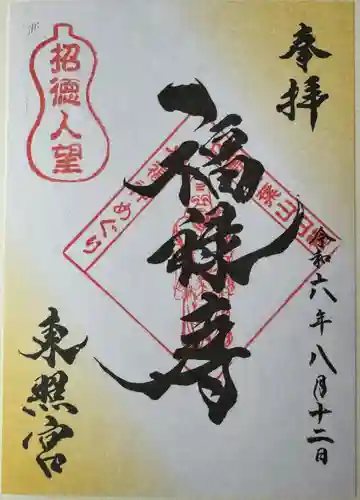 奉拝
令和六年八月十二日
福禄寿
招徳人望
福神めぐり
東照宮